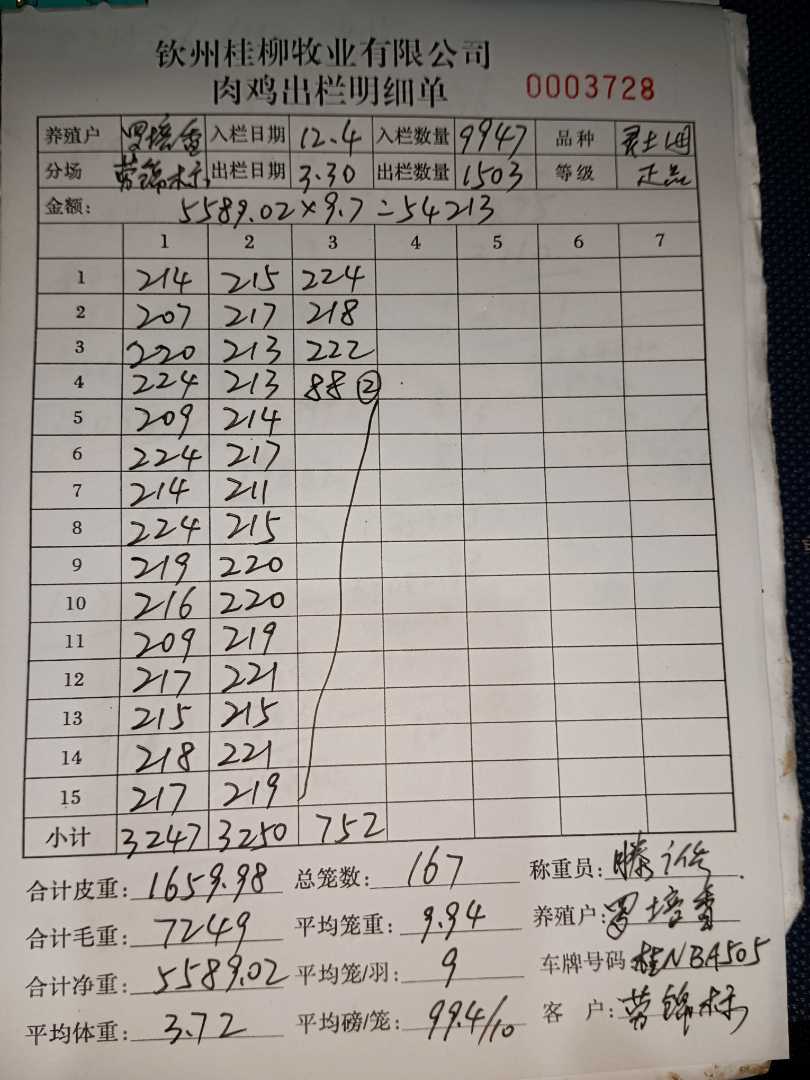 钦州桂柳牧业有限公司
肉鸡出栏明细单 0003728
养殖户 罗培香 入栏日期 12.4 入栏数量 9947 品种 灵土
分场 劳锦标 出栏日期 3.30 出栏数量 1503 等级 正品
金额: 5589.02×9.7=54213
1 2 3 4 5 6 7
1 214 215 224
2 207 217 218
3 220 213 222
4 224 213 88 ②
5 209 214
6 224 217
7 214 211
8 224 215
9 219 220
10 216 220
11 209 219
12 217 221
13 215 215
14 218 221
15 217 219
小计 3247 3250 752
合计皮重: 1659.98 总笼数: 167 称重员: 滕
合计毛重: 7249 平均笼重: 9.94 养殖户: 罗培香
合计净重: 5589.02 平均笼/羽: 9 车牌号码: 桂NBA505
平均体重: 3.72 平均磅/笼: 99.4/10 客户: 劳锦标